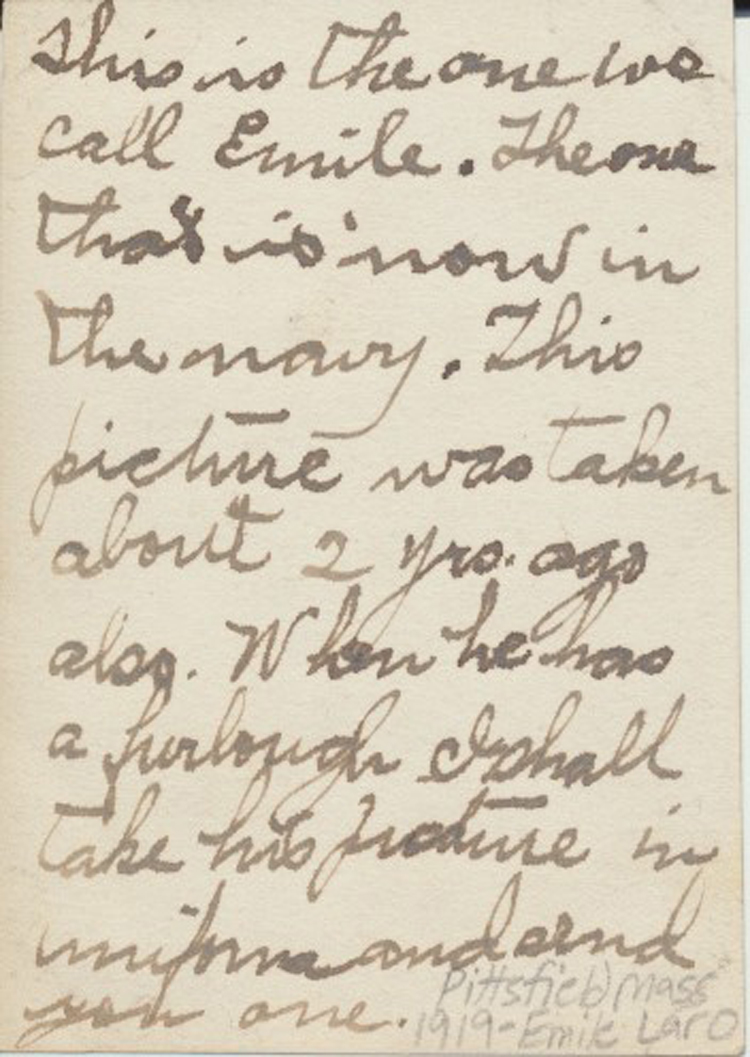 This is the one we
call Emile. The one
that is now in
the navy. This
picture was taken
about 2 yrs. ago
also. When he has
a furlough I shall
take his picture in
uniform and send
you one.
Pittsfield Mass
1919-Emile Laro